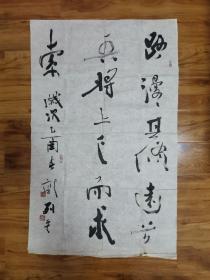 路漫漫其修远兮
吾将上下而求
索 岁次乙酉春